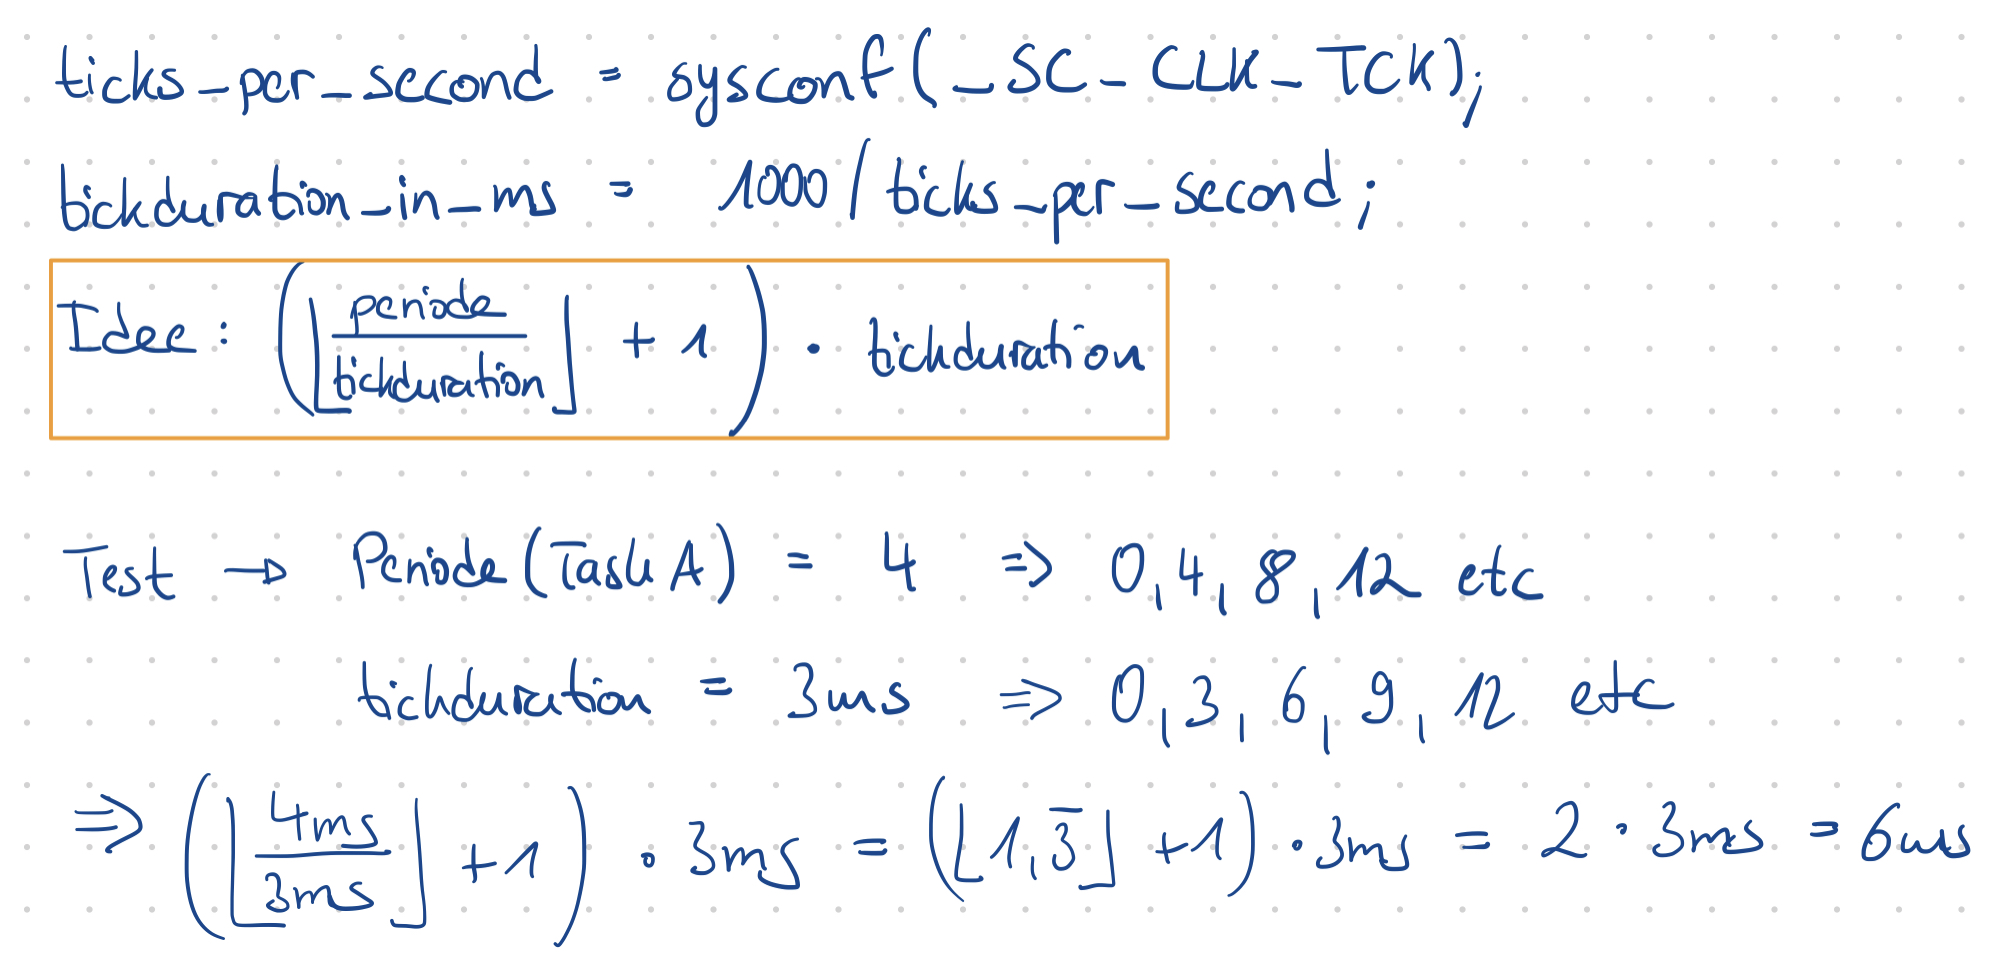 ticks_per_second = sysconf(_SC_CLK_TCK);
tickduration_in_ms = 1000/ticks_per_second;
Idee: (⌊periode/tickduration⌋ + 1) · tickduration
Test → Periode(Task A) = 4 ⇒ 0, 4, 8, 12 etc
tickduration = 3ms ⇒ 0, 3, 6, 9, 12 etc
⇒ (⌊4ms/3ms⌋ + 1) · 3ms = (⌊1,3̅⌋ + 1) · 3ms = 2 · 3ms = 6ms